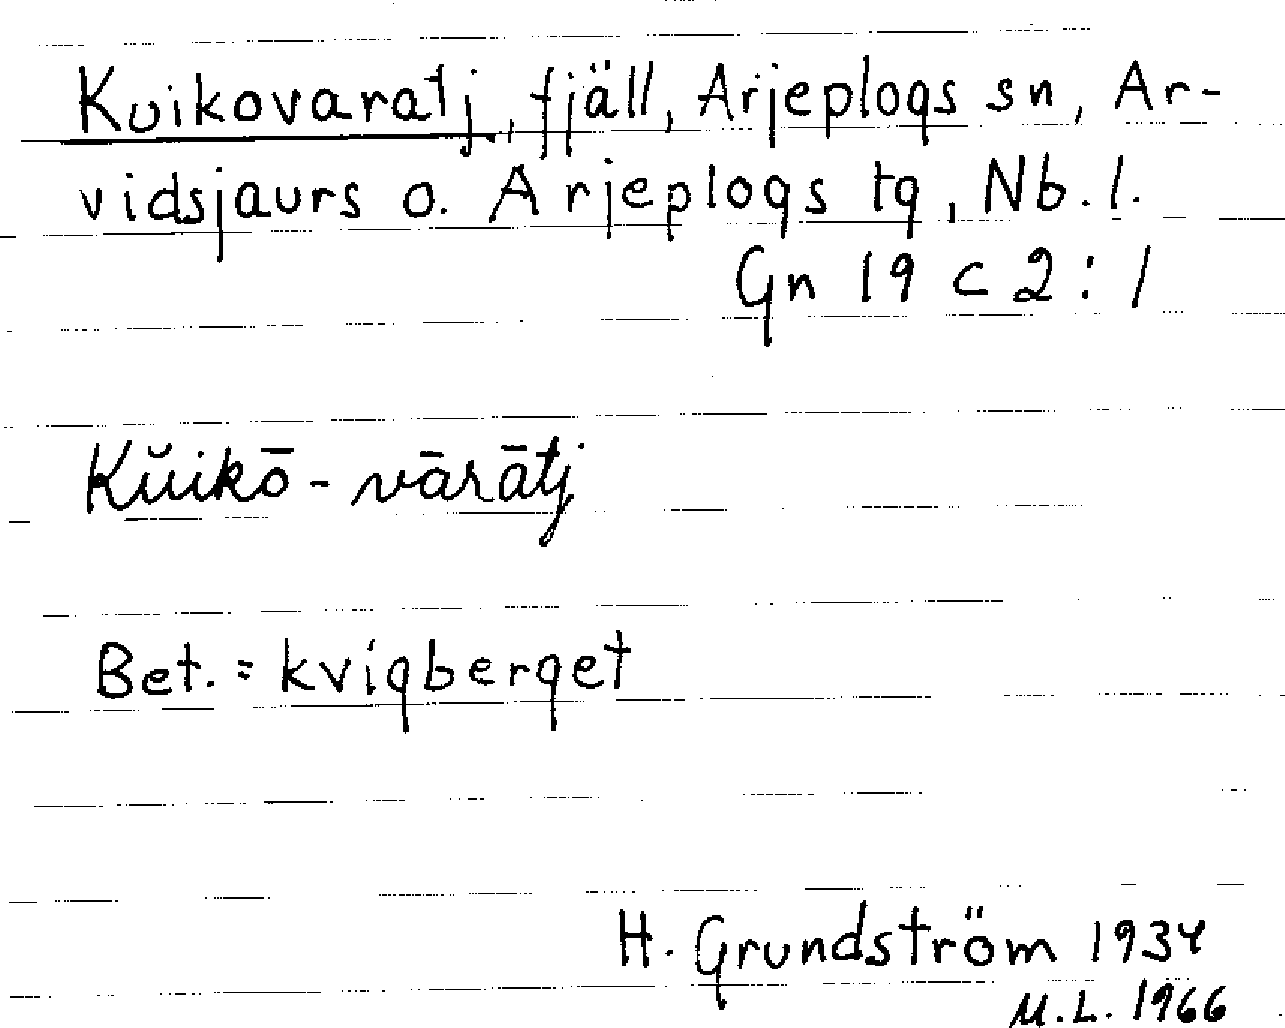 Kuikovaratj, fjäll, Arjeplogs sn, Ar-
vidsjaurs o. Arjeplogs tg, Nb. l.
Gn 19 c 2:1
Kŭikō-vārātj
Bet. = kvigberget
H. Grundström 1934
M.L. 1966